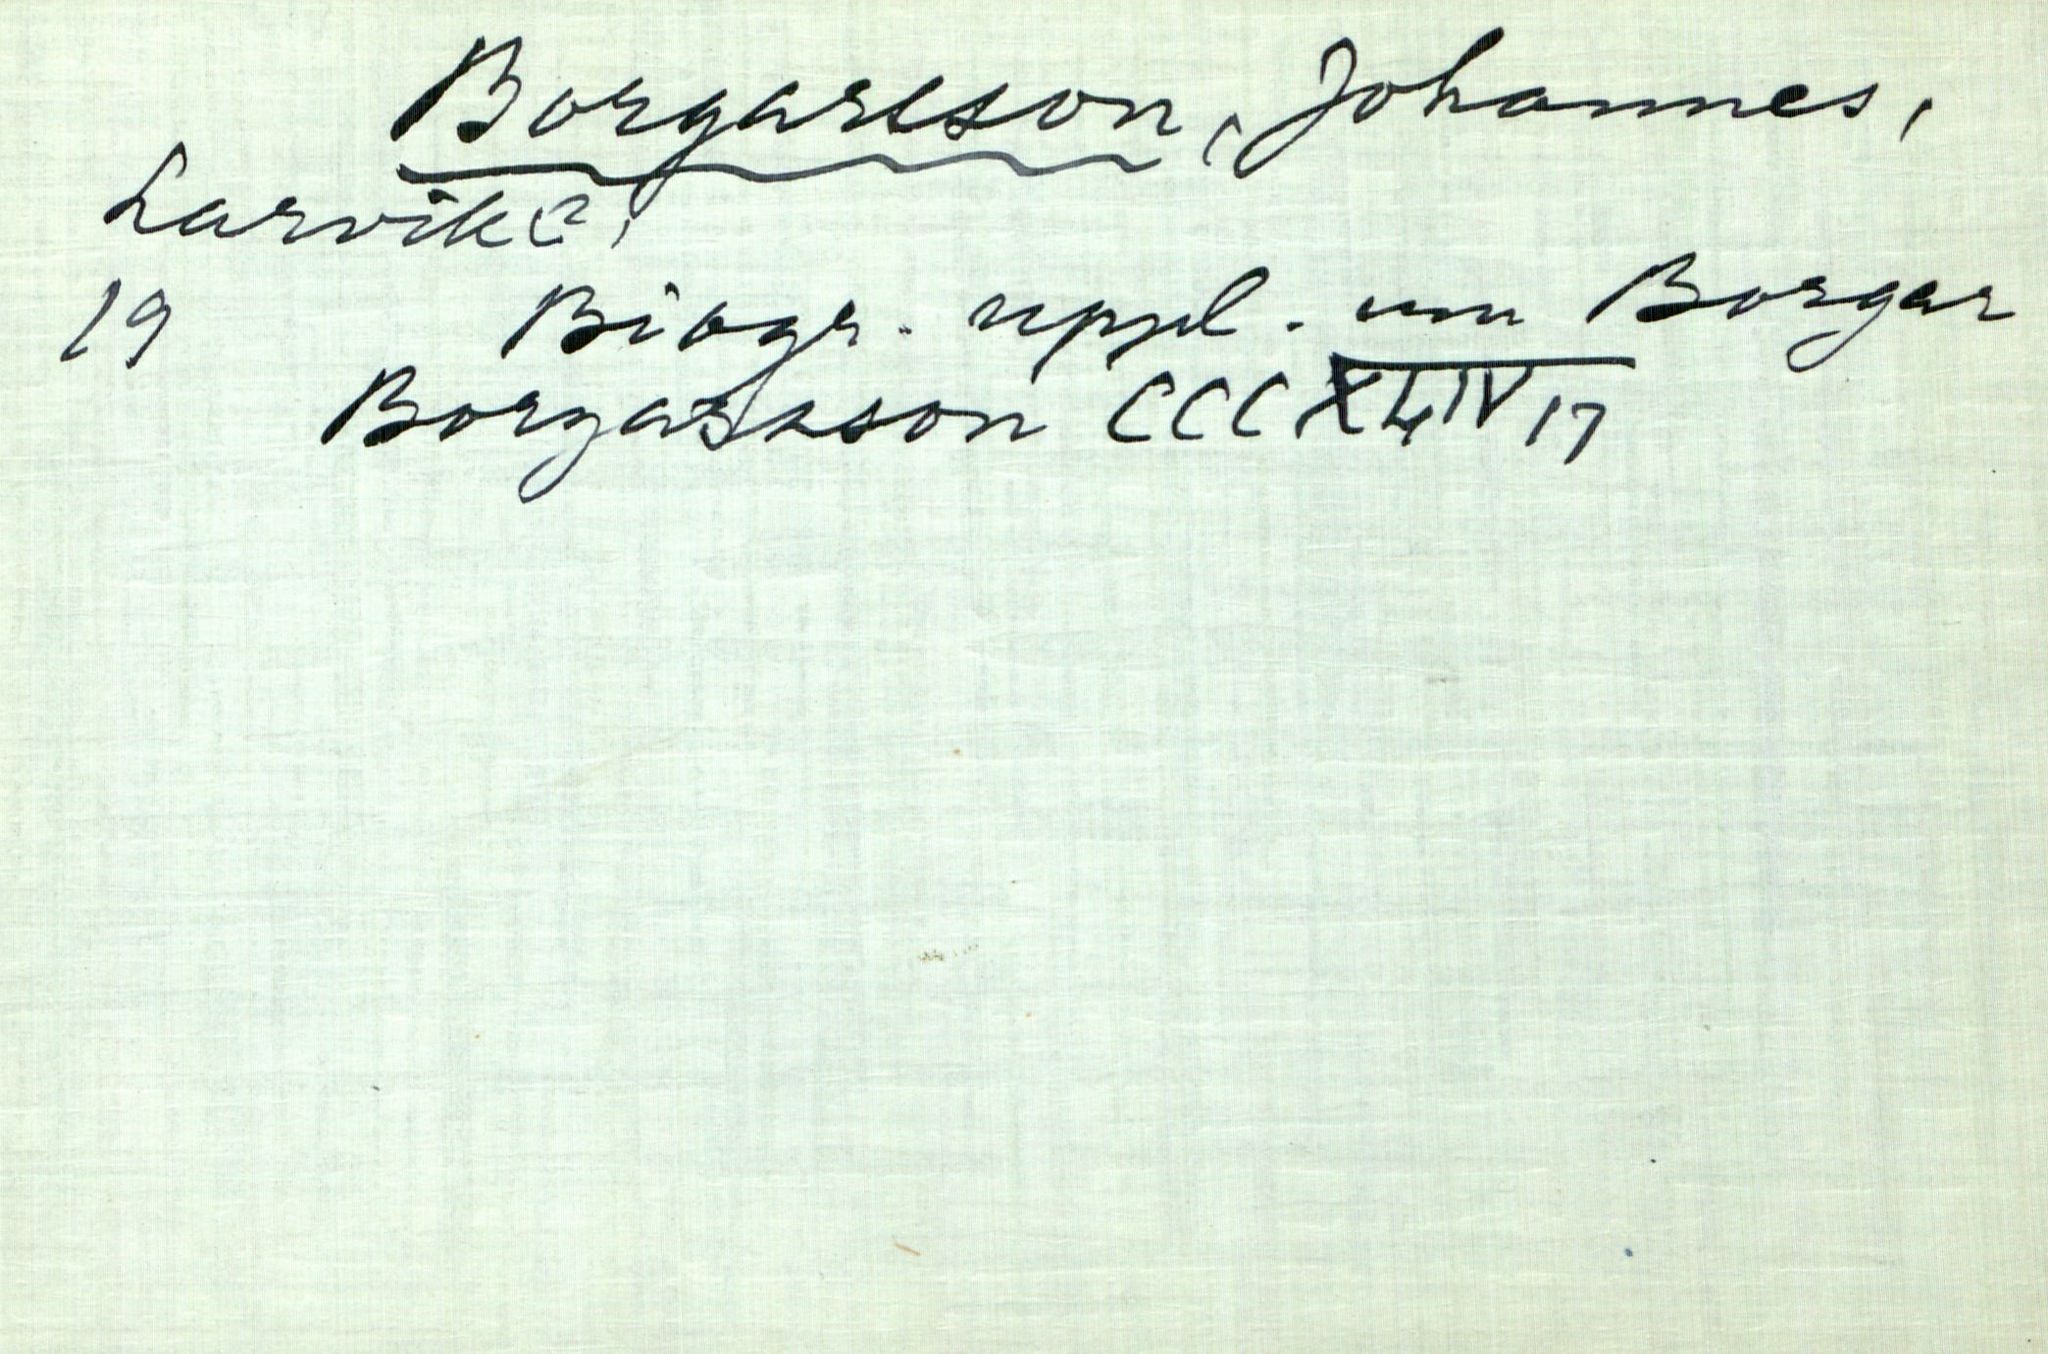 Borgarsson, Johannes,
Larvik(?),
19 Biogr. uppl. um Borgar
Borgarsson CCCXLIV 17